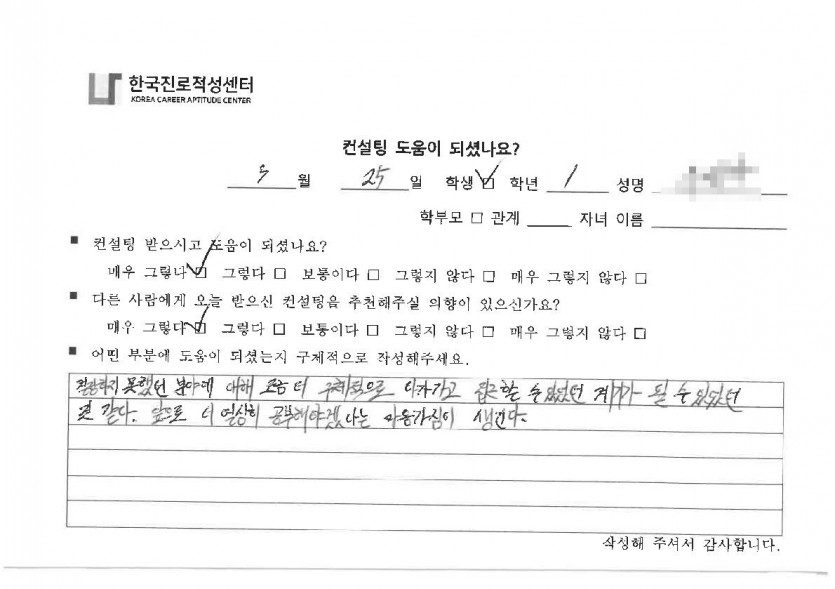 한국진로적성센터
KOREA CAREER APTITUDE CENTER
컨설팅 도움이 되셨나요?
5 월 25 일 학생 ☑ 학년 1 성명
학부모 □ 관계 자녀 이름
■ 컨설팅 받으시고 도움이 되셨나요?
매우 그렇다 ☑ 그렇다 □ 보통이다 □ 그렇지 않다 □ 매우 그렇지 않다 □
■ 다른 사람에게 오늘 받으신 컨설팅을 추천해주실 의향이 있으신가요?
매우 그렇다 ☑ 그렇다 □ 보통이다 □ 그렇지 않다 □ 매우 그렇지 않다 □
■ 어떤 부분에 도움이 되셨는지 구체적으로 작성해주세요.
못했던 분야에 대해 조금 더 구체적으로 다가가고 접근할 수 있었던 계기가 될 수 있었던
것 같다. 앞으로 더 열심히 공부해야겠다는 마음가짐이 생긴다.
작성해 주셔서 감사합니다.